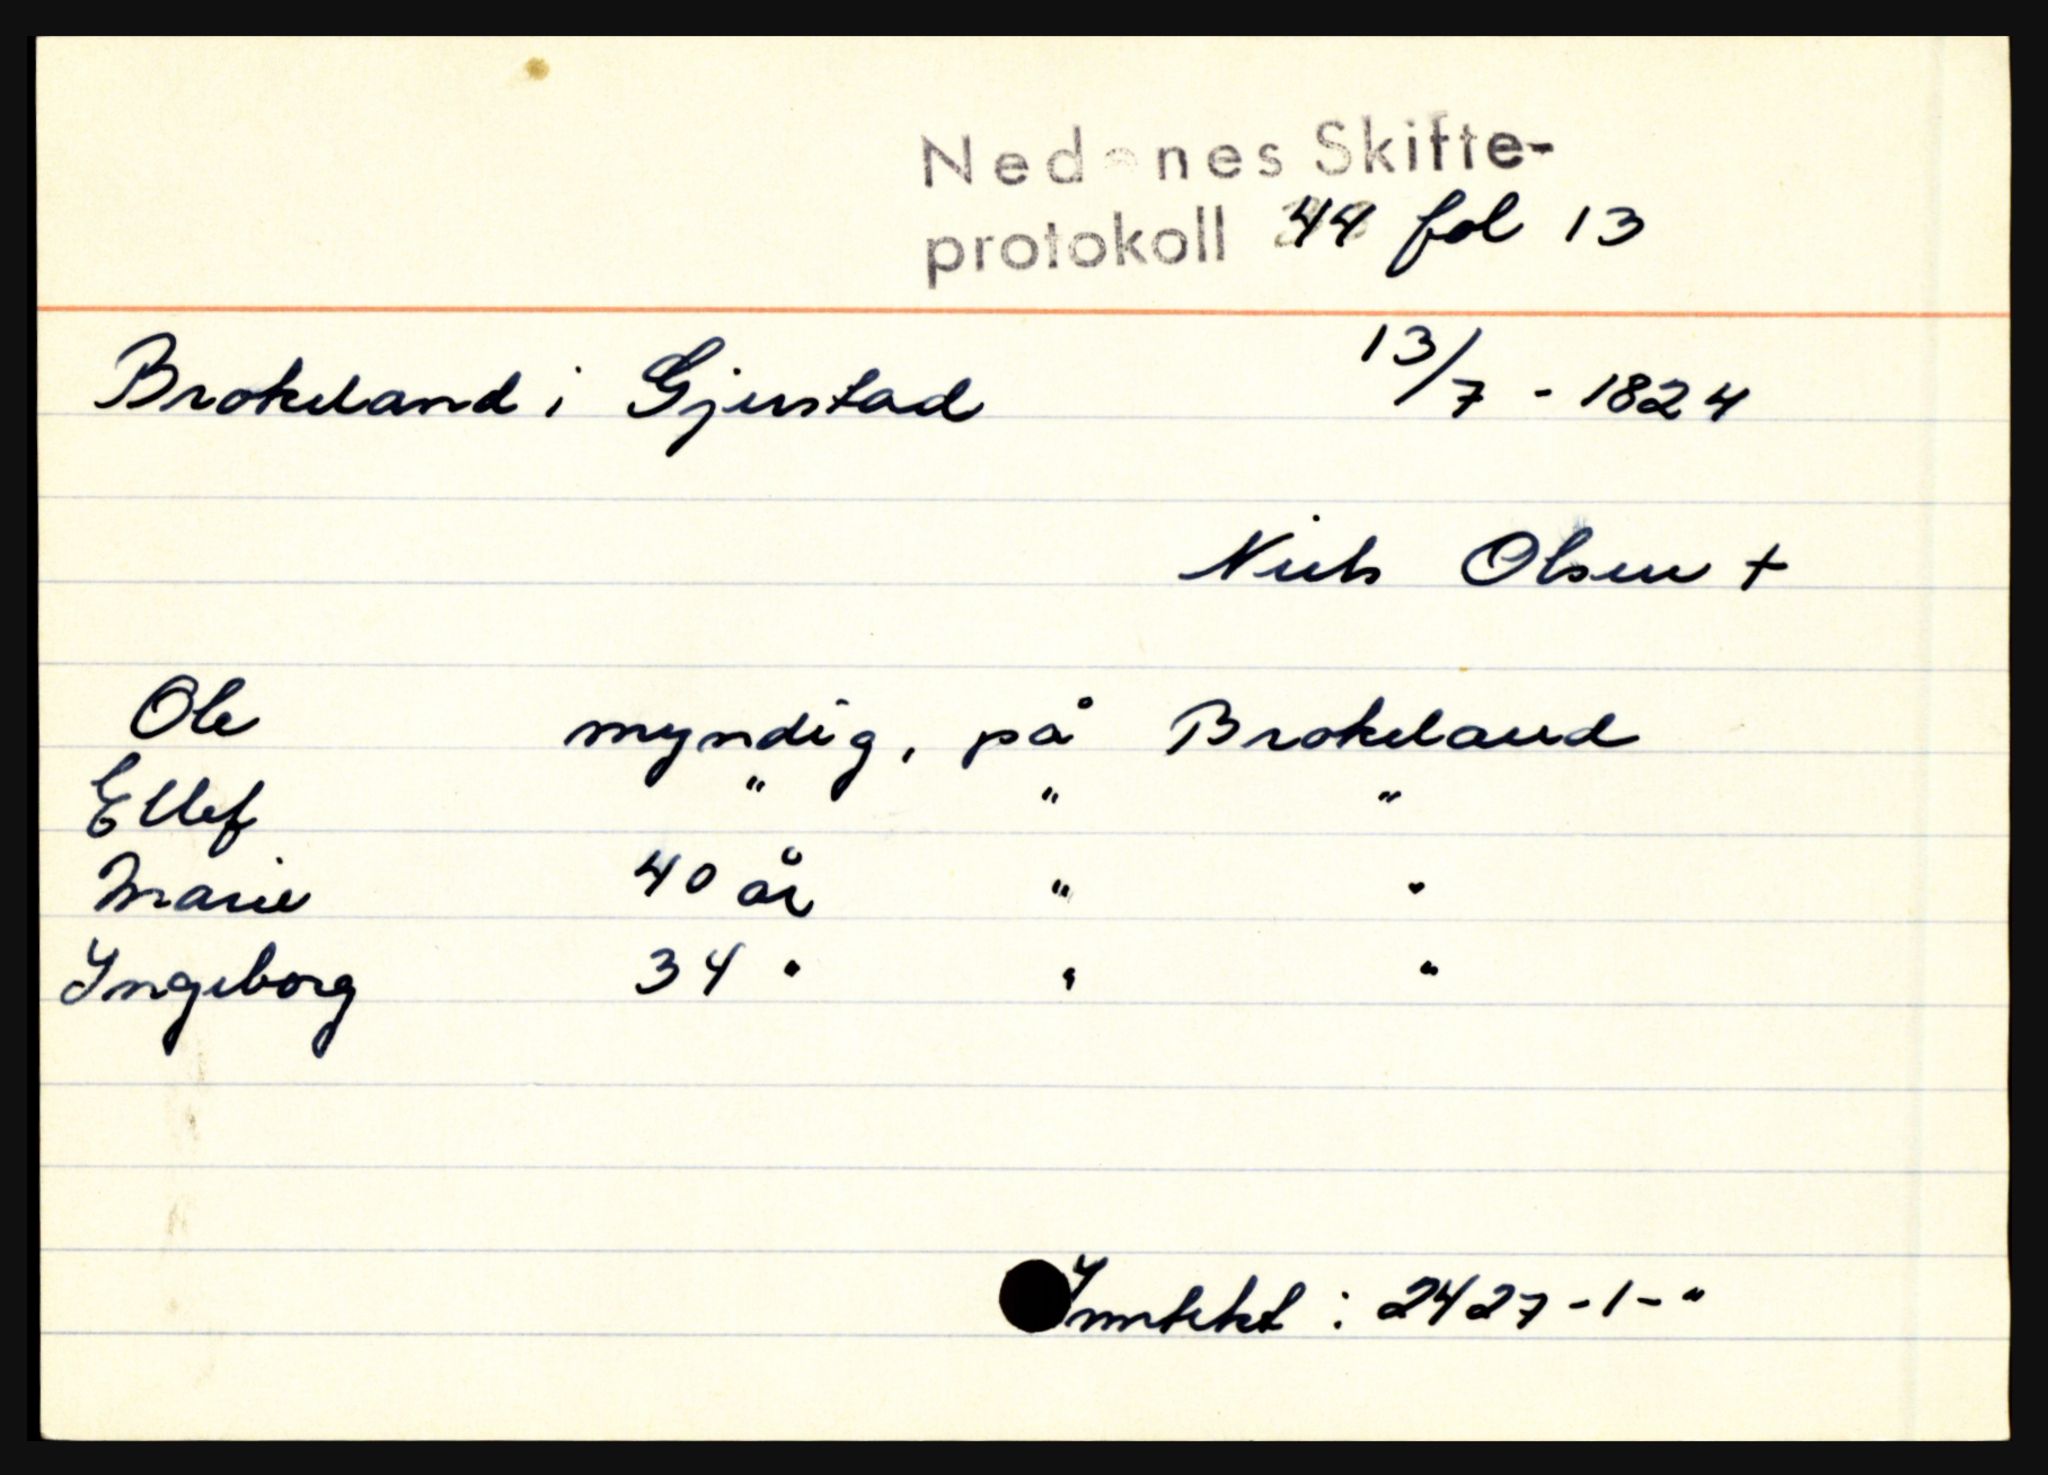 Nedenes Skifte-
protokoll 44 fol 13
Brokeland i Gjerstad 13/7 - 1824
Niels Olsen +
Ole myndig, på Brokeland
Ellef " " "
Marie 40 år " "
Ingeborg 34 " " "
Inntekt : 2427 - 1 - "